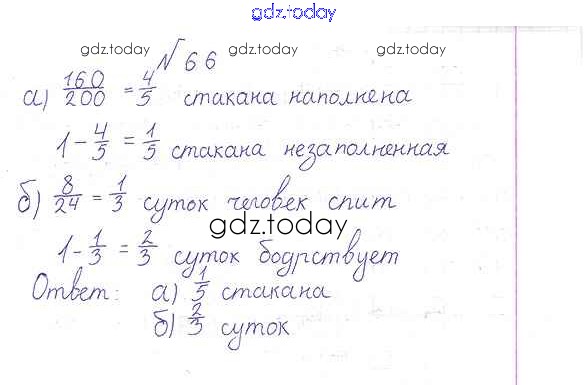 gdz.today
№ 66
gdz.today gdz.today gdz.today
а) 160/200 = 4/5 стакана наполнена
1 - 4/5 = 1/5 стакана незаполненная
б) 8/24 = 1/3 суток человек спит
gdz.today
1 - 1/3 = 2/3 суток бодрствует
Ответ: а) 1/5 стакана
б) 2/3 суток